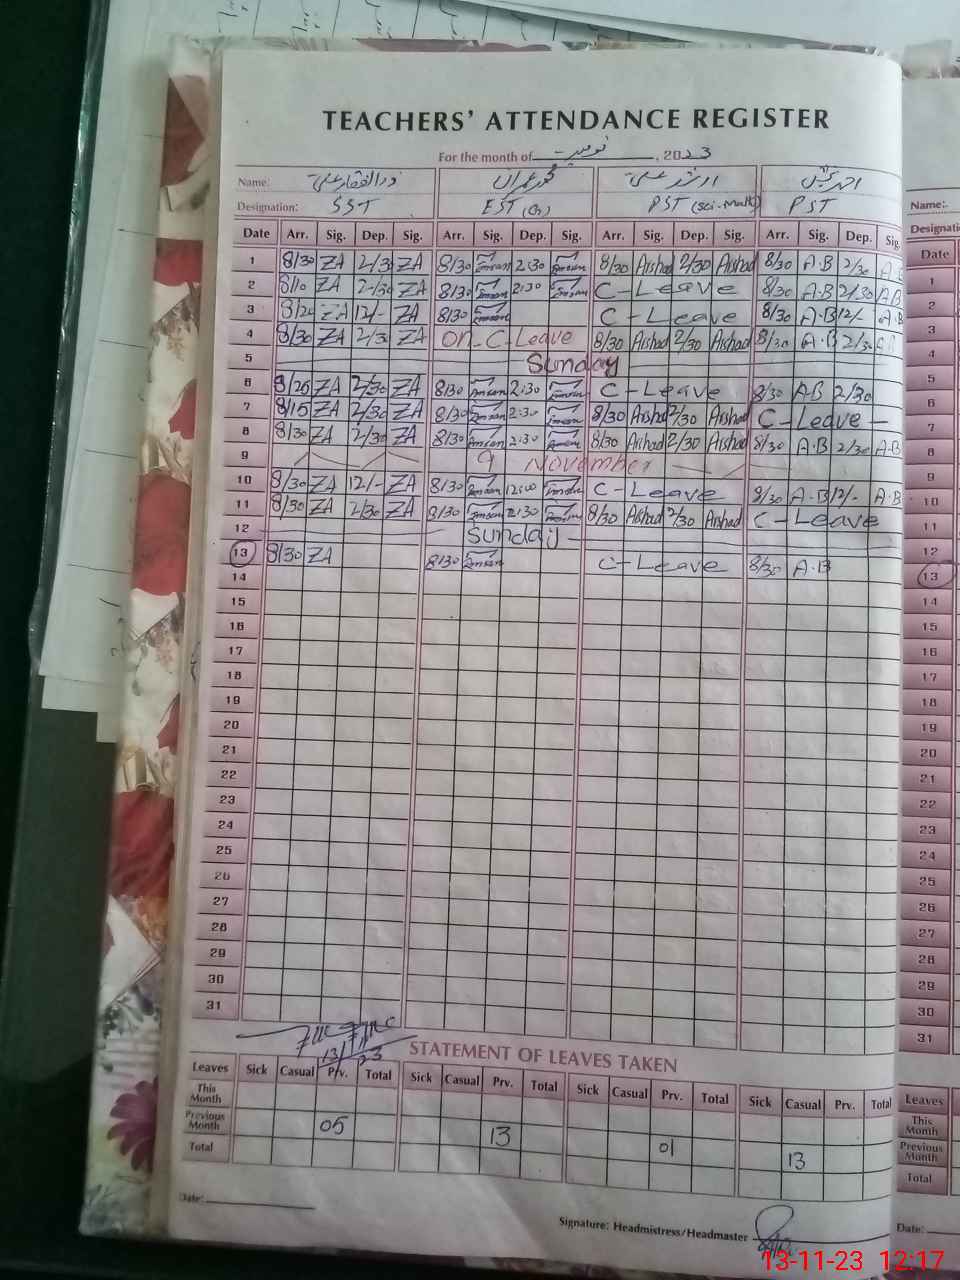 TEACHERS' ATTENDANCE REGISTER
For the month of نومبر , 2023
Name: ذوالفقار علی محمد عمران ارشد علی
Designation: SST EST (G) PST (sci-math) PST
Date Arr. Sig. Dep. Sig. Arr. Sig. Dep. Sig. Arr. Sig. Dep. Sig. Arr. Sig. Dep. Sig.
1 8/30 ZA 2/30 ZA 8/30 Imran 2:30 Imran 8/30 Arshad 2/30 Arshad 8/30 A.B 2/30 A.B
2 8/10 ZA 2/30 ZA 8/30 Imran 2:30 Imran C-Leave 8/30 A.B 2/30 A.B
3 8/20 ZA 12/- ZA 8/30 Imran C-Leave 8/30 A.B 12/- A.B
4 8/30 ZA 2/30 ZA on C-Leave 8/30 Arshad 2/30 Arshad 8/30 A.B 2/30
5 Sunday
6 8/25 ZA 2/30 ZA 8/30 Imran 2:30 Imran C-Leave 8/30 AB 2/30
7 8/15 ZA 2/30 ZA 8/30 Imran 2:30 Imran 8/30 Arshad 2/30 Arshad C-Leave
8 8/30 ZA 2/30 ZA 8/30 Imran 2:30 Imran 8/30 Arshad 2/30 Arshad 8/30 A.B 2/30 A.B
9 9 November
10 8/30 ZA 12/- ZA 8/30 Imran 12:00 Imran C-Leave 8/30 A.B 12/- A.B
11 8/30 ZA 2/30 ZA 8/30 Imran 2:30 Imran 8/30 Arshad 2/30 Arshad C-Leave
12 Sunday
13 8/30 ZA 8/30 Imran C-Leave 8/30 A.B
14
15
16
17
18
19
20
21
22
23
24
25
26
27
28
29
30
31
13/11/23
STATEMENT OF LEAVES TAKEN
Leaves Sick Casual Prv. Total Sick Casual Prv. Total Sick Casual Prv. Total Sick Casual Prv. Total
This Month
Previous Month 05 13 01 13
Total
Date:
Signature: Headmistress/Headmaster
Name:
Date
1
2
3
4
5
6
7
8
9
10
11
12
13
14
15
16
17
18
19
20
21
22
23
24
25
26
27
28
29
30
31
Leaves
This Month
Previous Month
Total
Date:
13-11-23 12:17